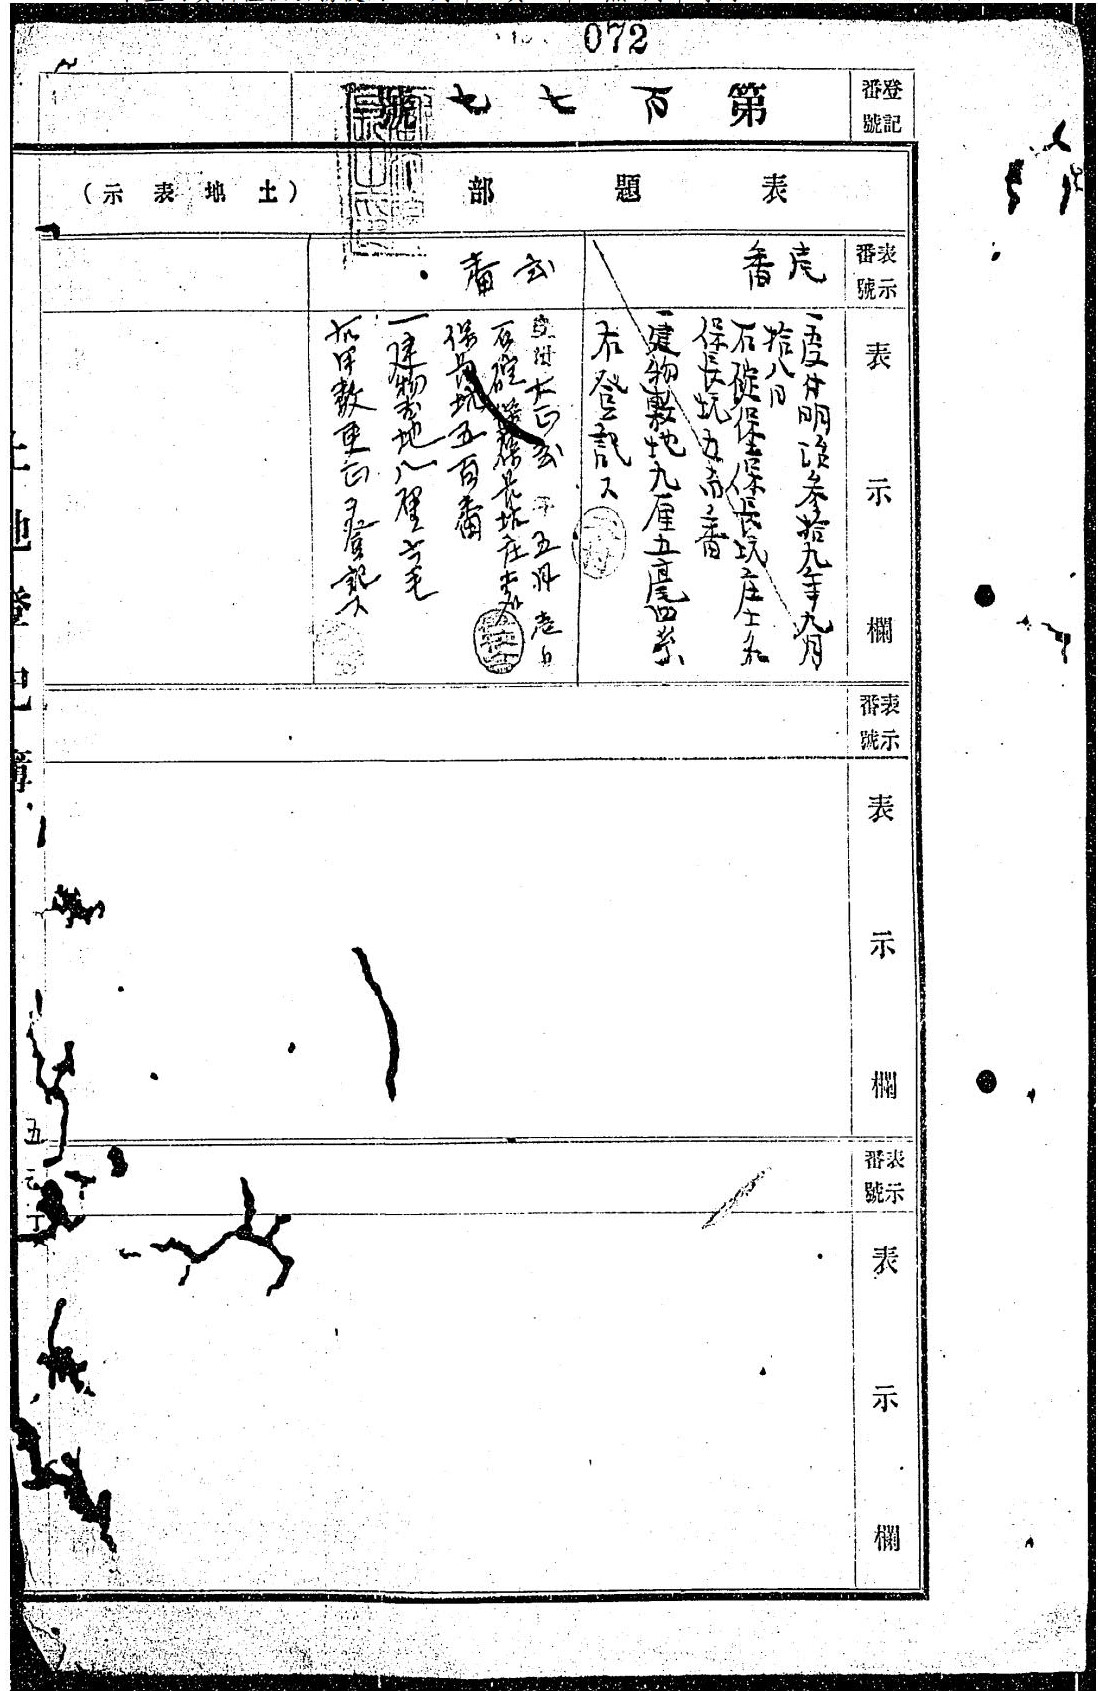 072
登記番號
第百七七號
表題部
(土地表示)
表示番號
壱番
弍番
表示欄
受付明治参拾九年九月
拾八日
石碇保土名
保長坑五百番
一建物敷地九厘五毫四糸
右登記ス
受附大正弍年五月壱日
石碇保保長坑庄土名
保長坑五百番
一建物敷地八厘六毛
右甲数更正ヲ登記ス
表示番號
表示欄
表示番號
表示欄
土地登記簿